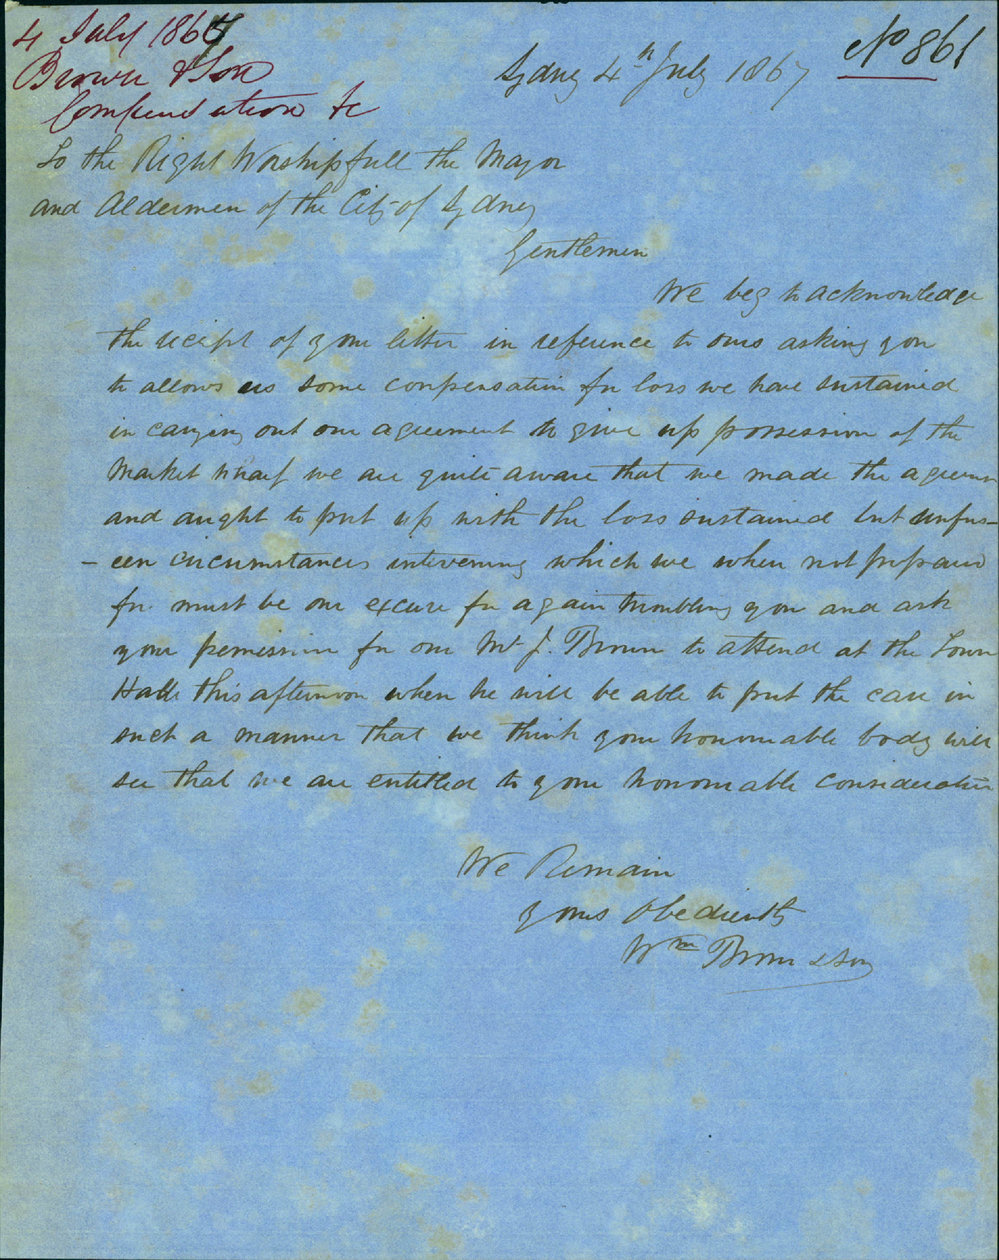 4 July 1867
Brown & Son
Compensation &c
No 861
Sydney 4th July 1867
To the Right Worshipfull the Mayor
and Aldermen of the City of Sydney
Gentlemen
We beg to acknowledge
the receipt of your letter in reference to ours asking you
to allows us some conpensation for loss we have sustained
in carying out our agreement to give up possession of the
Market Wharf we are quite aware that we made the agreemn
and aught to put up with the loss sustained but unfors-
-een circumstances intervening which we when not prepared
for must be our excuse for again troubling you and ask
your permission for our Mr J. Brown to attend at the Town
Hall this afternoon when he will be able to put the case in
such a manner that we think your honourable body will
see that we are entitled to your honourable consideration
We Remain
yours Obediently
Wm Brown & Son